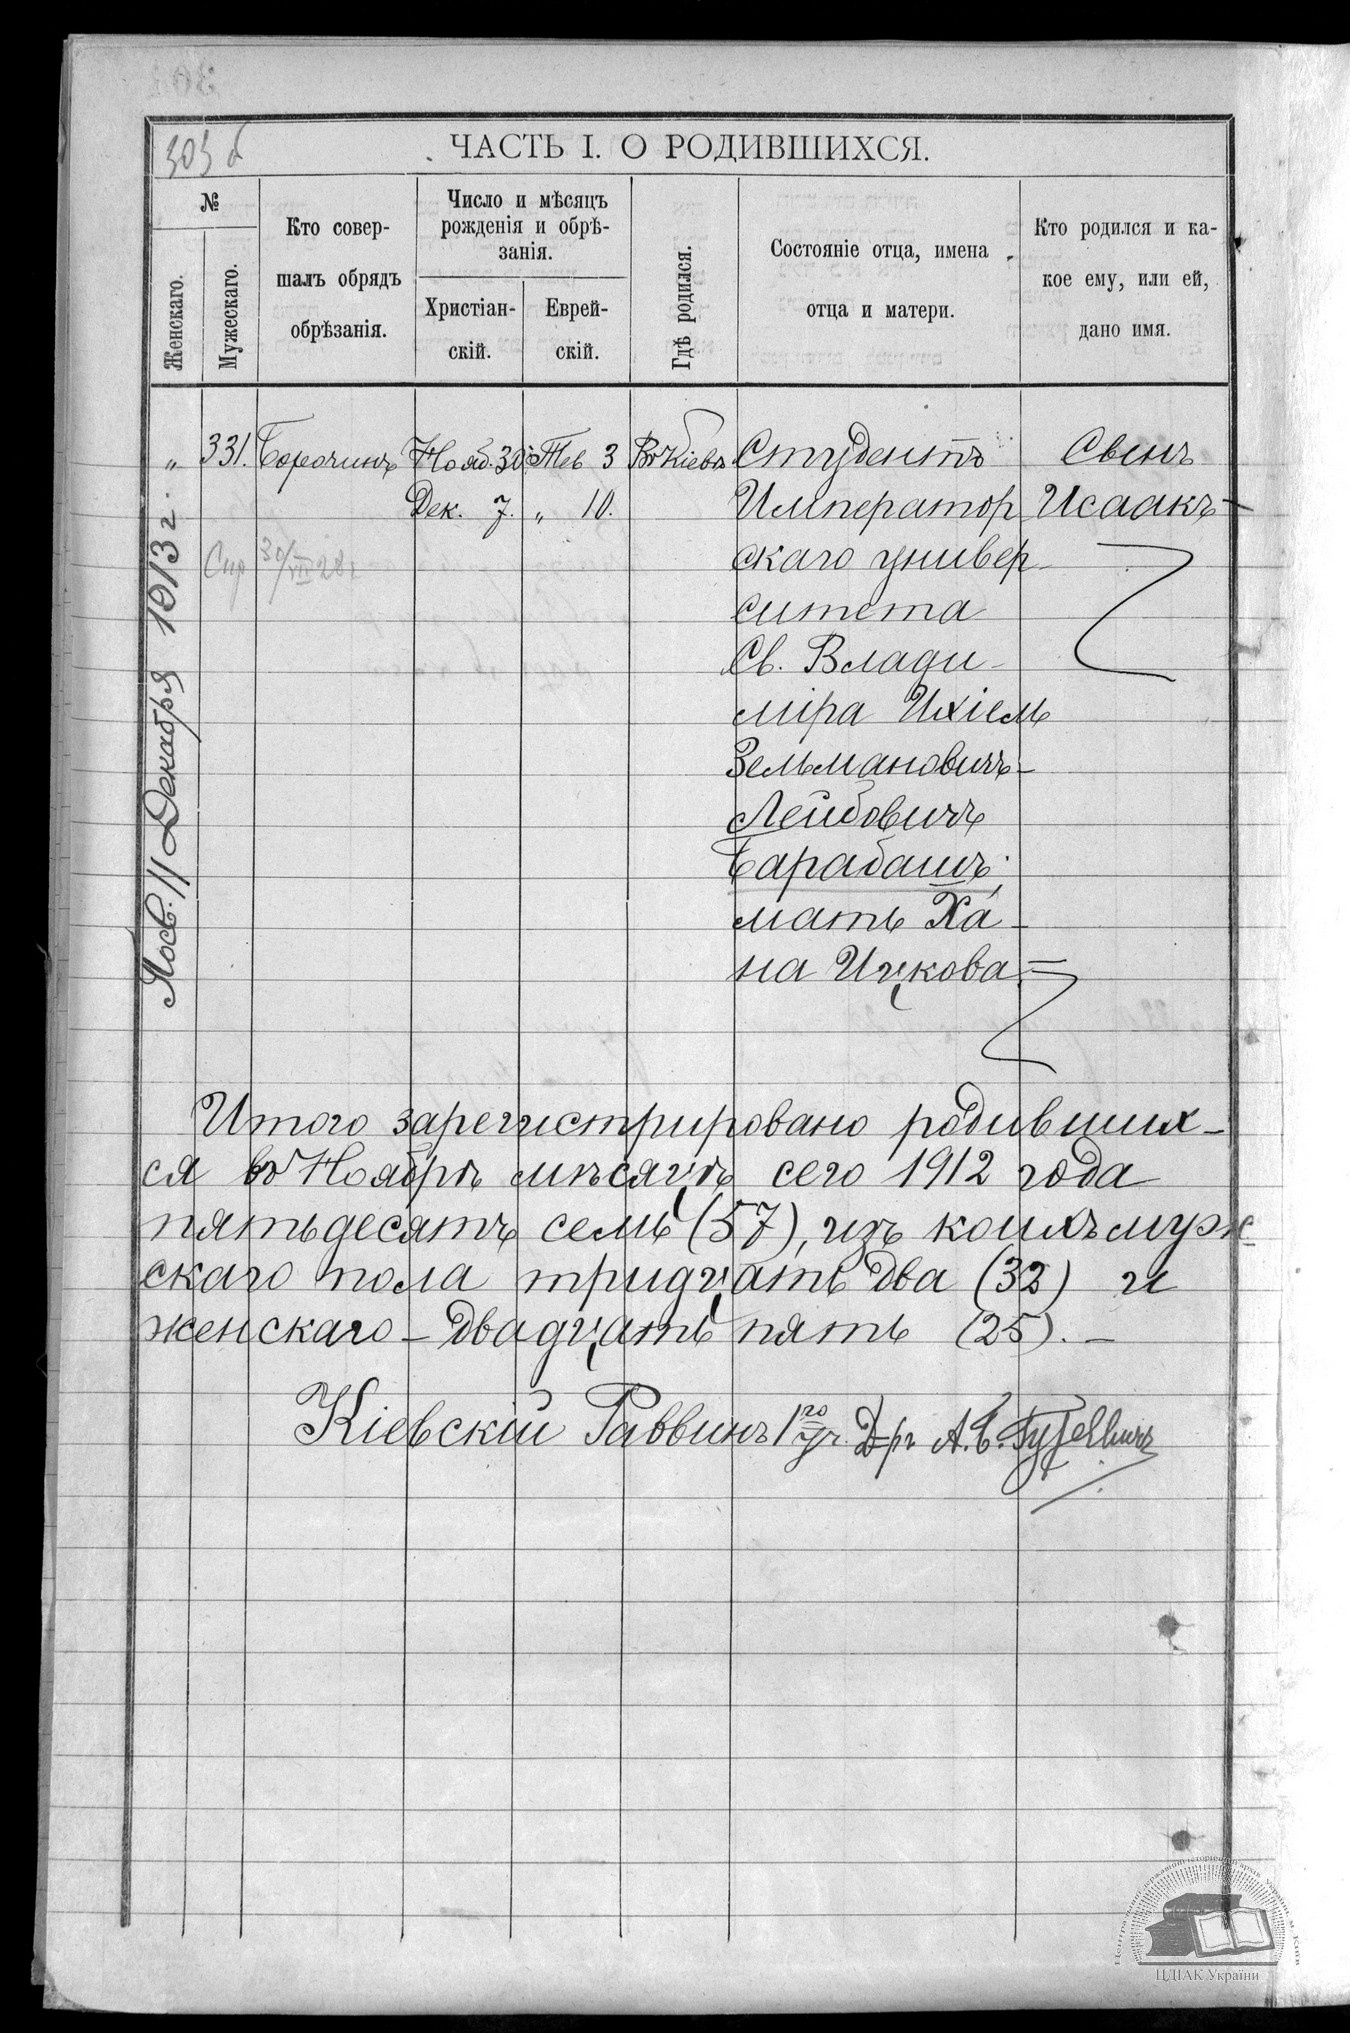 303 б
ЧАСТЬ I. О РОДИВШИХСЯ.
№
Женскаго.
Мужескаго.
Кто совер-
шалъ обрядъ
обрѣзанія.
Число и мѣсяцъ
рожденія и обрѣ-
занія.
Христіан-
скій.
Еврей-
скій.
Гдѣ родился.
Состояніе отца, имена
отца и матери.
Кто родился и ка-
кое ему, или ей,
дано имя.
„ 331. Нояб. 30. Тев 3 Въ Кіевѣ Студентъ
Дек. 7. „ 10. Император
скаго универ-
ситета
Св. Влади-
міра Ихіель
Зельмановичъ-
Лейбовичъ
Барабашъ;
мать Ха-
на Ицкова =
Свенъ
Исаакъ —
30/VII 28 г
Декабря 1913 г.
Итого зарегистрировано родивших-
ся въ Ноябрѣ мѣсяцѣ сего 1912 года
пятьдесятъ семь (57), изъ коихъ муж-
скаго пола тридцать два (32) и
женскаго – двадцать пять (25). –
Кіевскій Раввинъ 1го уч. Д-ръ А. Б. Гуревичъ
ЦДІАК України